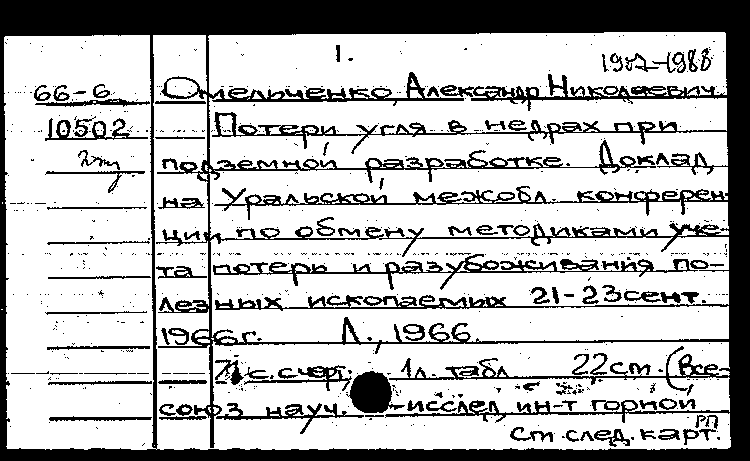 1.
1907-1988
66-6 Омельченко, Александр Николаевич.
10502 Потери угля в недрах при
подземной разработке. Доклад
на Уральской межобл. конферен-
ции по обмену методиками уче-
та потерь и разубоживания по-
лезных ископаемых 21-23 сент.
1966 г. Л., 1966.
с. с черт.; 1 л. табл. 22 см. (Все-
союз науч. -исслед. ин-т горной
РП
См. след. карт.